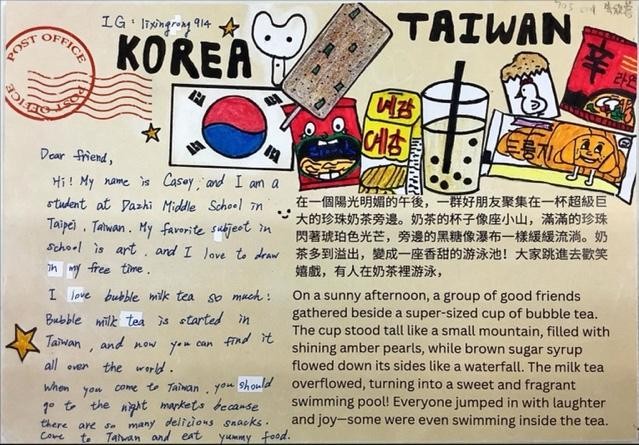 IG: lixingrong914
TAIWAN
POST OFFICE
POST OFFICE
KOREA
예감
예감
辛
라면
Dear friend,
Hi! My name is Casey, and I am a
student at Dazhi Middle School in
Taipei, Taiwan. My favorite subject in
school is art, and I love to draw
in my free time.
I love bubble milk tea so much!
Bubble milk tea is started in
Taiwan, and now you can find it
all over the world.
When you come to Taiwan, you should
go to the night markets because
there are so many delicious snacks.
Come to Taiwan and eat yummy food.
在一個陽光明媚的午後，一群好朋友聚集在一杯超級巨
大的珍珠奶茶旁邊。奶茶的杯子像座小山，滿滿的珍珠
閃著琥珀色光芒，旁邊的黑糖像瀑布一樣緩緩流淌。奶
茶多到溢出，變成一座香甜的游泳池！大家跳進去歡笑
嬉戲，有人在奶茶裡游泳，
On a sunny afternoon, a group of good friends
gathered beside a super-sized cup of bubble tea.
The cup stood tall like a small mountain, filled with
shining amber pearls, while brown sugar syrup
flowed down its sides like a waterfall. The milk tea
overflowed, turning into a sweet and fragrant
swimming pool! Everyone jumped in with laughter
and joy—some were even swimming inside the tea.